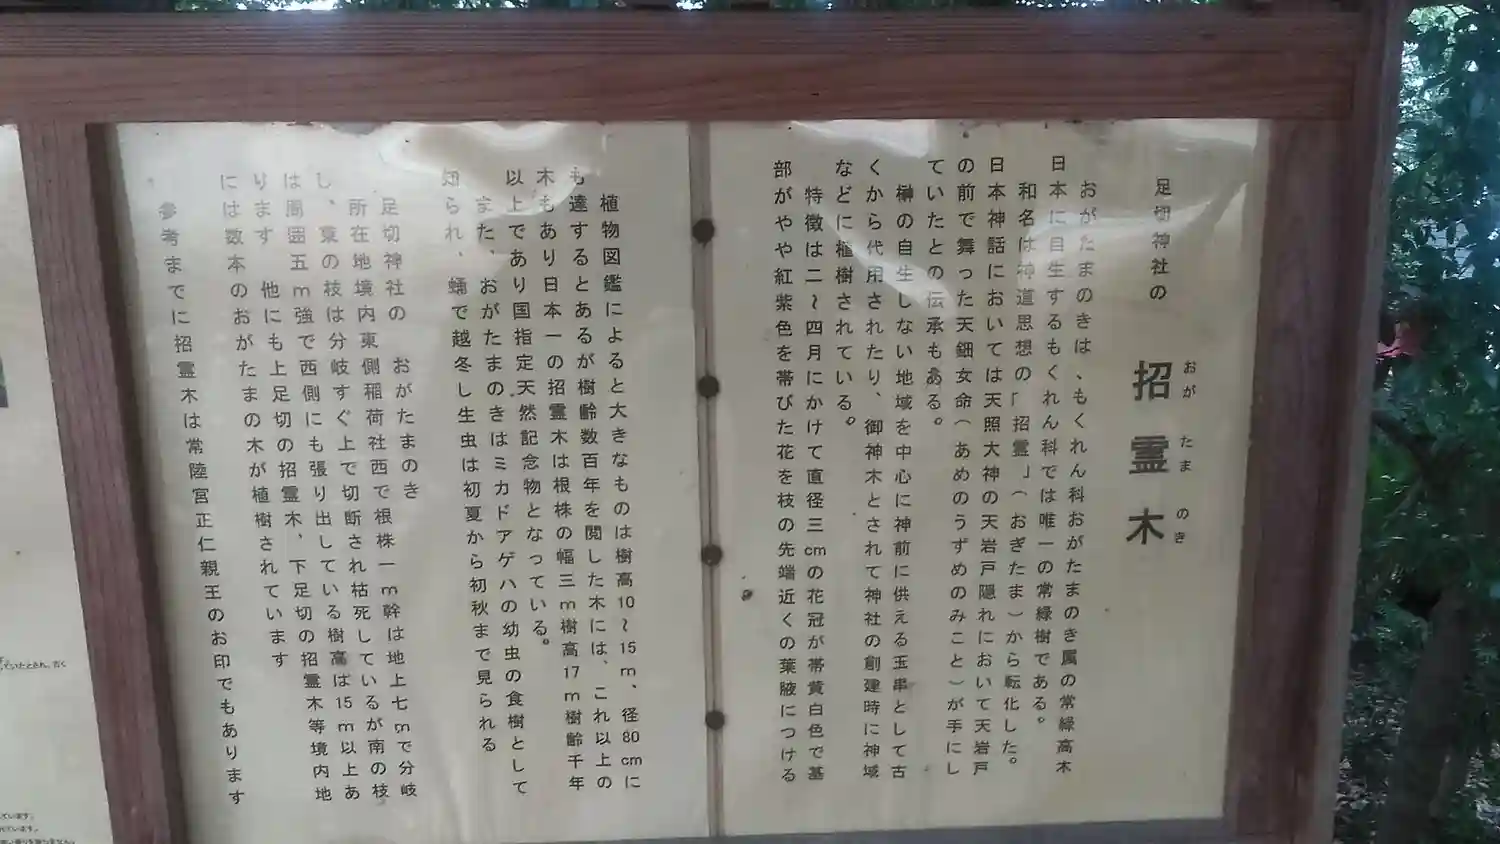 足切神社の
招霊木
おが たま のき
おがたまのきは、もくれん科おがたまのき属の常緑高木
日本に自生するもくれん科では唯一の常緑樹である。
和名は神道思想の「招霊」(おぎたま)から転化した。
日本神話においては天照大神の天岩戸隠れにおいて天岩戸
の前で舞った天鈿女命(あめのうずめのみこと)が手にし
ていたとの伝承もある。
榊の自生しない地域を中心に神前に供える玉串として古
くから代用されたり、御神木とされて神社の創建時に神域
などに植樹されている。
特徴は二~四月にかけて直径三cmの花冠が帯黄白色で基
部がやや紅紫色を帯びた花を枝の先端近くの葉腋につける
植物図鑑によると大きなものは樹高10~15m、径80cmに
も達するとあるが樹齢数百年を閲した木には、これ以上の
木もあり日本一の招霊木は根株の幅三m樹高17m樹齢千年
以上であり国指定天然記念物となっている。
また、おがたまのきはミカドアゲハの幼虫の食樹として
知られ、蛹で越冬し生虫は初夏から初秋まで見られる
足切神社の おがたまのき
所在地境内東側稲荷社西で根株一m幹は地上七mで分岐
し、東の枝は分岐すぐ上で切断され枯死しているが南の枝
は周囲五m強で西側にも張り出している樹高は15m以上あ
ります 他にも上足切の招霊木、下足切の招霊木等境内地
には数本のおがたまの木が植樹されています
参考までに招霊木は常陸宮正仁親王のお印でもあります
ていたとされ、古く
ています。
れています。